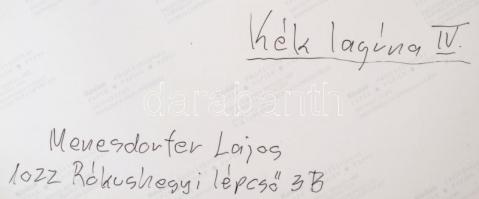 Kék lagúna IV.
darabanth
Menesdorfer Lajos
1022 Rókushegyi lépcső 3B